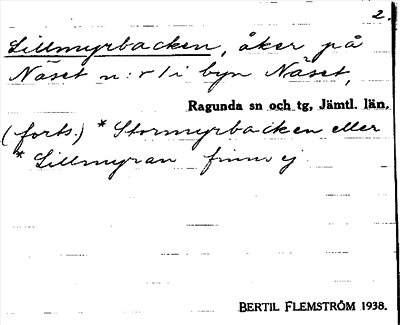 2.
Lillmyrbacken, åker på
Näset n:r 1 i byn Näset,
Ragunda sn och tg, Jämtl. län.
(forts.) * Stormyrbacken eller
* Lillmyran finns ej
BERTIL FLEMSTRÖM 1938.